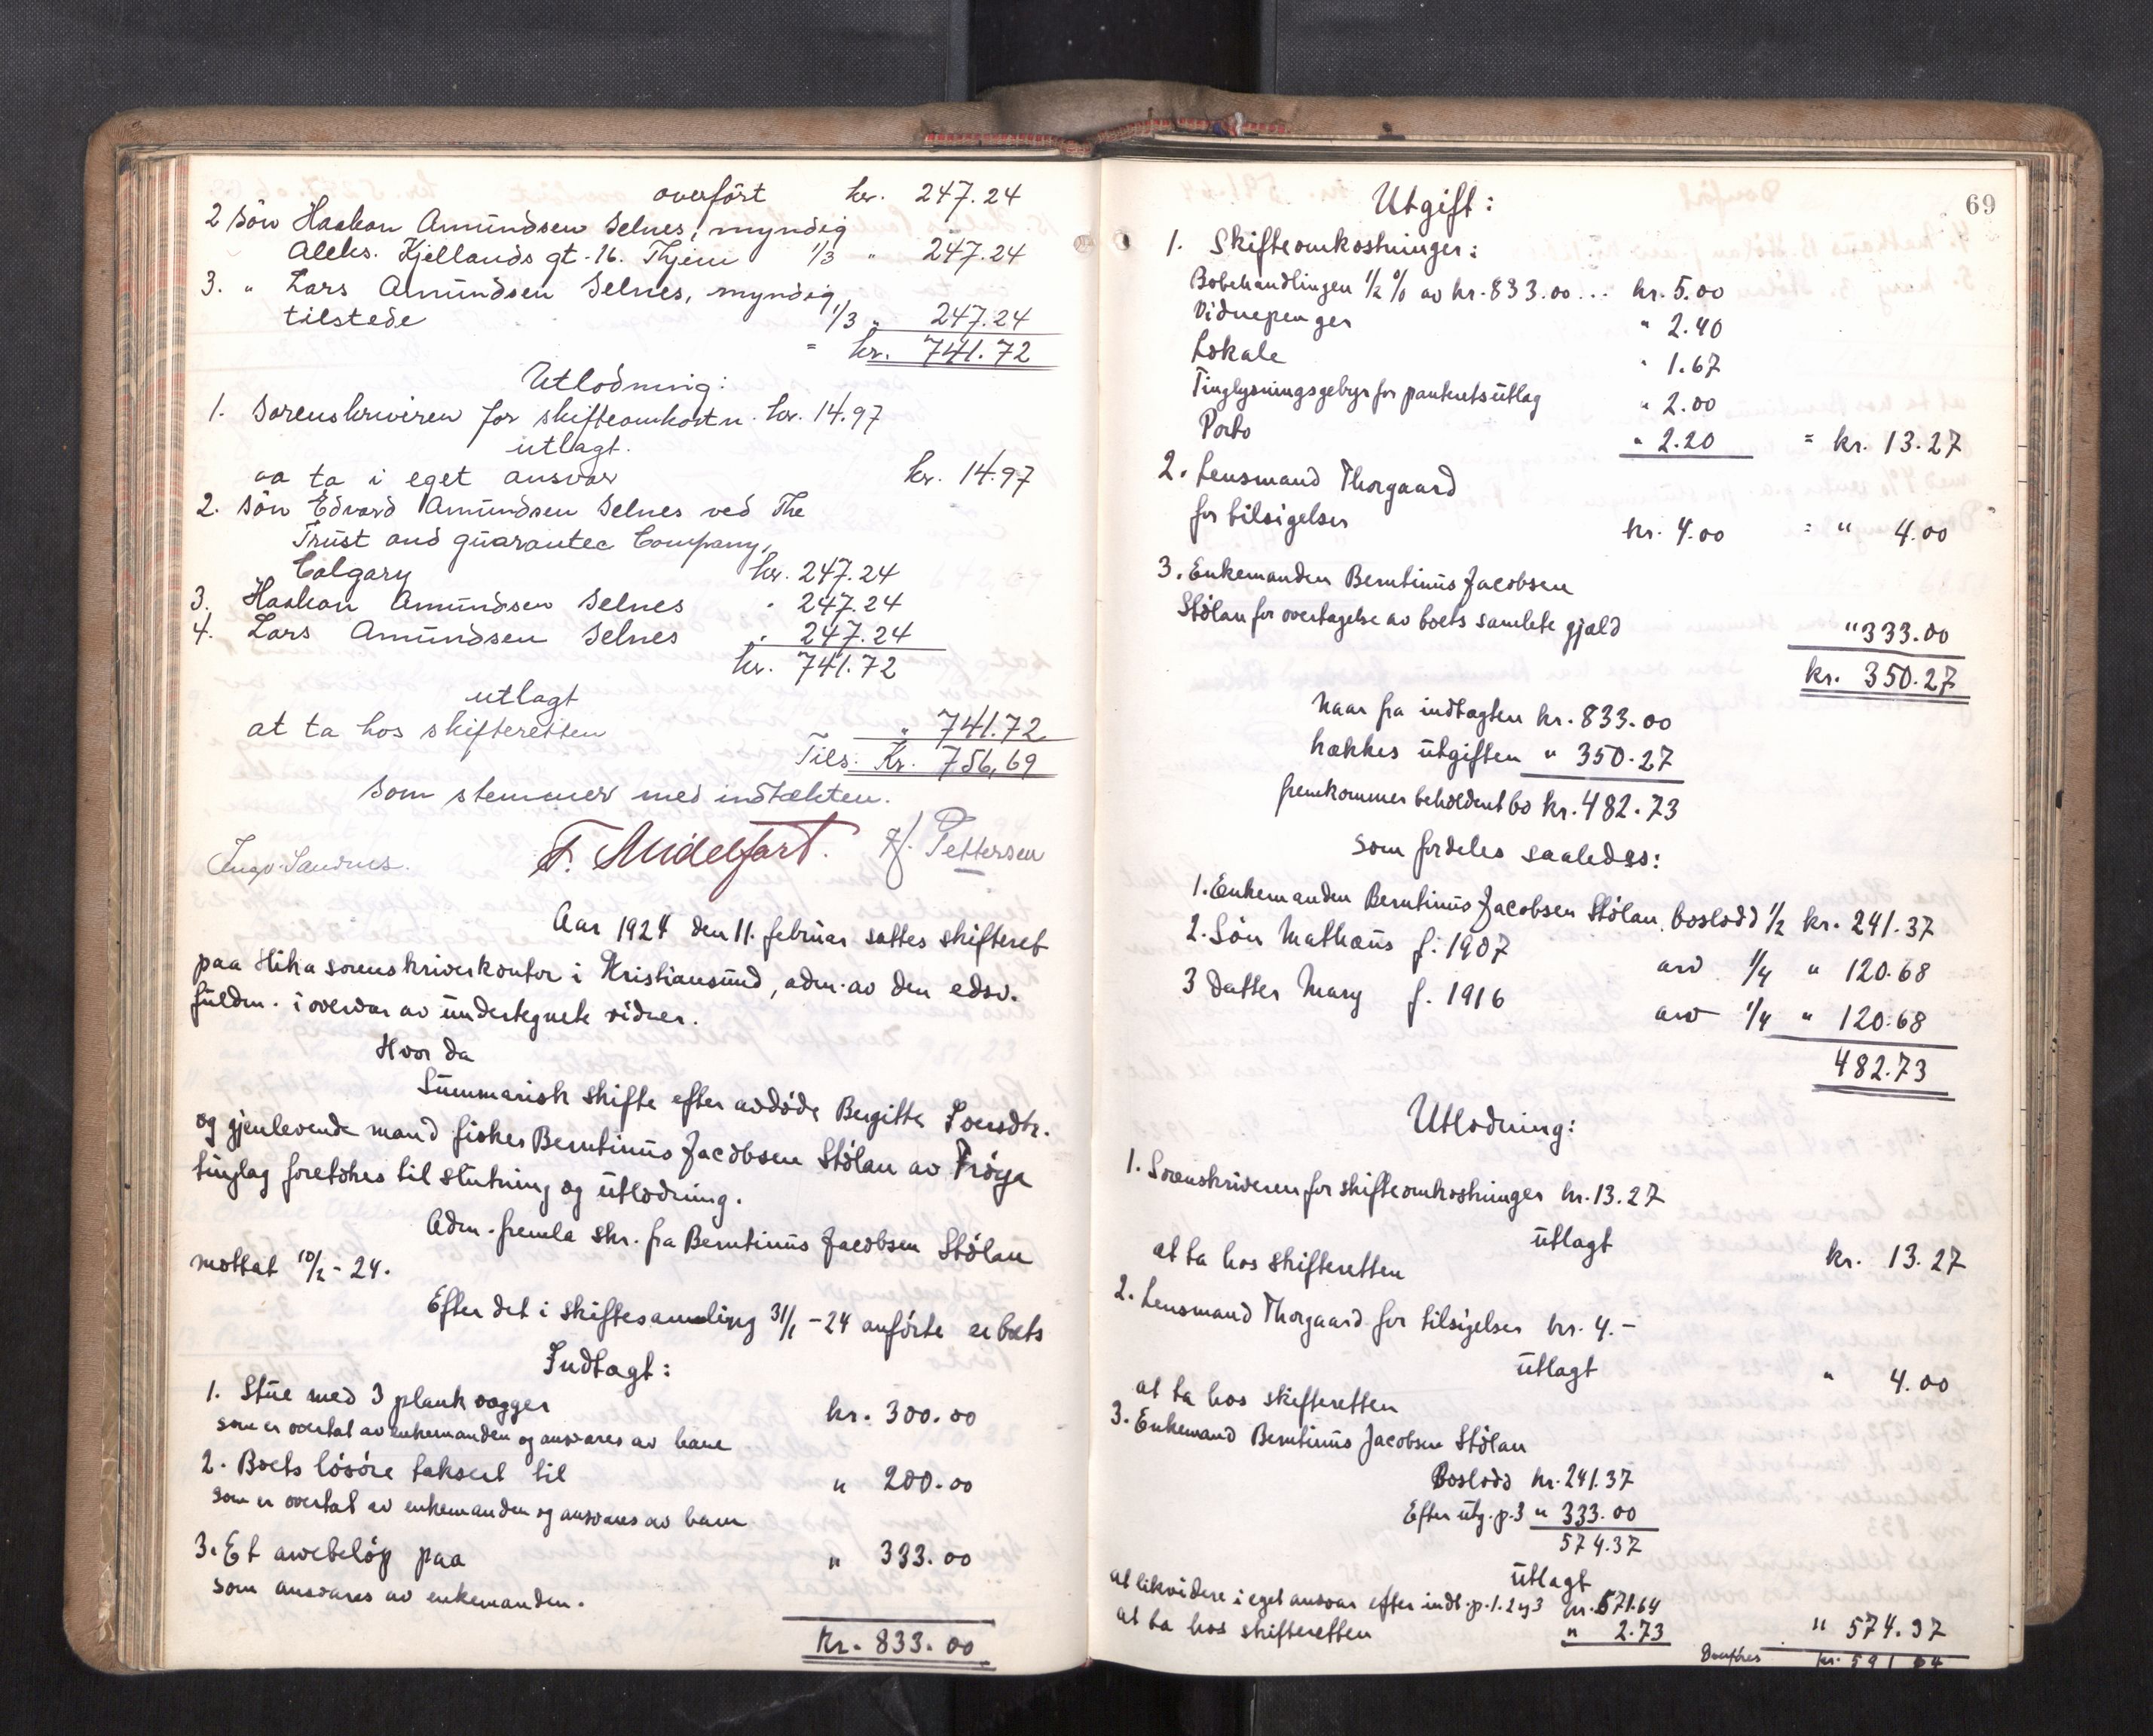 overført kr. 247.24
2 Søn Haakon Amundsen Selnes, myndig
Aleks. Kjellands gt. 16. Thjem 1/3 " 247.24
3. " Lars Amundsen Selnes, myndig,
tilstede 1/3 " 247.24
= kr. 741.72
Utlodning:
1. Sorenskriveren for skifteomkostn. kr. 14.97
utlagt.
aa ta i eget ansvar kr. 14.97
2. Søn Edvard Amundsen Selnes ved The
Trust and guarantee Company,
Calgary kr. 247.24
3. Haakon Amundsen Selnes " 247.24
4. Lars Amundsen Selnes " 247.24
kr. 741.72
utlagt
at ta hos skifteretten " 741.72
Tils: Kr. 756,69
Som stemmer med indtækten.
Ingv. Sandnes. F. Midelfart. J. Pettersen
Aar 1924 den 11. februar sattes skifteret
paa Hitra sorenskriverkontor i Kristiansund, adm. av den edsv.
fuldm. i overvær av undertegnete vidner.
Hvor da
Summarisk skifte efter avdøde Bergitte Iversdtr.
og gjenlevende mand fisker Berntinus Jacobsen Stølan av Frøya
tinglag foretokes til slutning og utlodning.
Adm. fremla skr. fra Berntinus Jacobsen Stølan
mottat 10/2 - 24.
Efter det i skiftesamling 31/1 - 24 anførte er boets
Indtægt:
1. Stue med 3 plankvægger kr. 300.00
som er overtat av enkemanden og ansvares av ham
2. Boets løsøre taksert til " 200.00
som er overtat av enkemanden og ansvares av ham
3. Et arvebeløp paa " 333.00
som ansvares av enkemanden.
Kr. 833.00
69
Utgift:
1. Skifteomkostninger:
Bobehandlingen 1/2 % av kr. 833.00... kr. 5.00
Vidnepenger " 2.40
Lokale " 1.67
Tinglysningsgebyr for panteretsutlæg " 2.00
Porto " 2.20 = kr. 13.27
2. Lensmand Thorgaard
for tilsigelser kr. 4.00 = " 4.00
3. Enkemanden Berntinus Jacobsen
Stølan for overtagelse av boets samlete gjæld " 333.00
kr. 350.27
Naar fra indtægten kr. 833.00
trækkes utgiften " 350.27
fremkommer beholdent bo kr. 482.73
som fordeles saaledes:
1. Enkemanden Berntinus Jacobsen Stølan, boslodd 1/2 kr. 241.37
2. Søn Mathæus f. 1907 arv 1/4 " 120.68
3 Datter Mary f. 1916 arv 1/4 " 120.68
482.73
Utlodning:
1. Sorenskriveren for skifteomkostninger kr. 13.27
utlagt
at ta hos skifteretten kr. 13.27
2. Lensmand Thorgaard for tilsigelser kr. 4.-
utlagt
at ta hos skifteretten " 4.00
3. Enkemand Berntinus Jacobsen Stølan
Boslodd kr. 241.37
Efter utg. p. 3 " 333.00
574.37
utlagt
at likvidere i eget ansvar efter indt. p. 1. 2 og 3 kr. 571.64
at ta hos skifteretten " 2.73 " 574.37
Overføres kr. 591 64